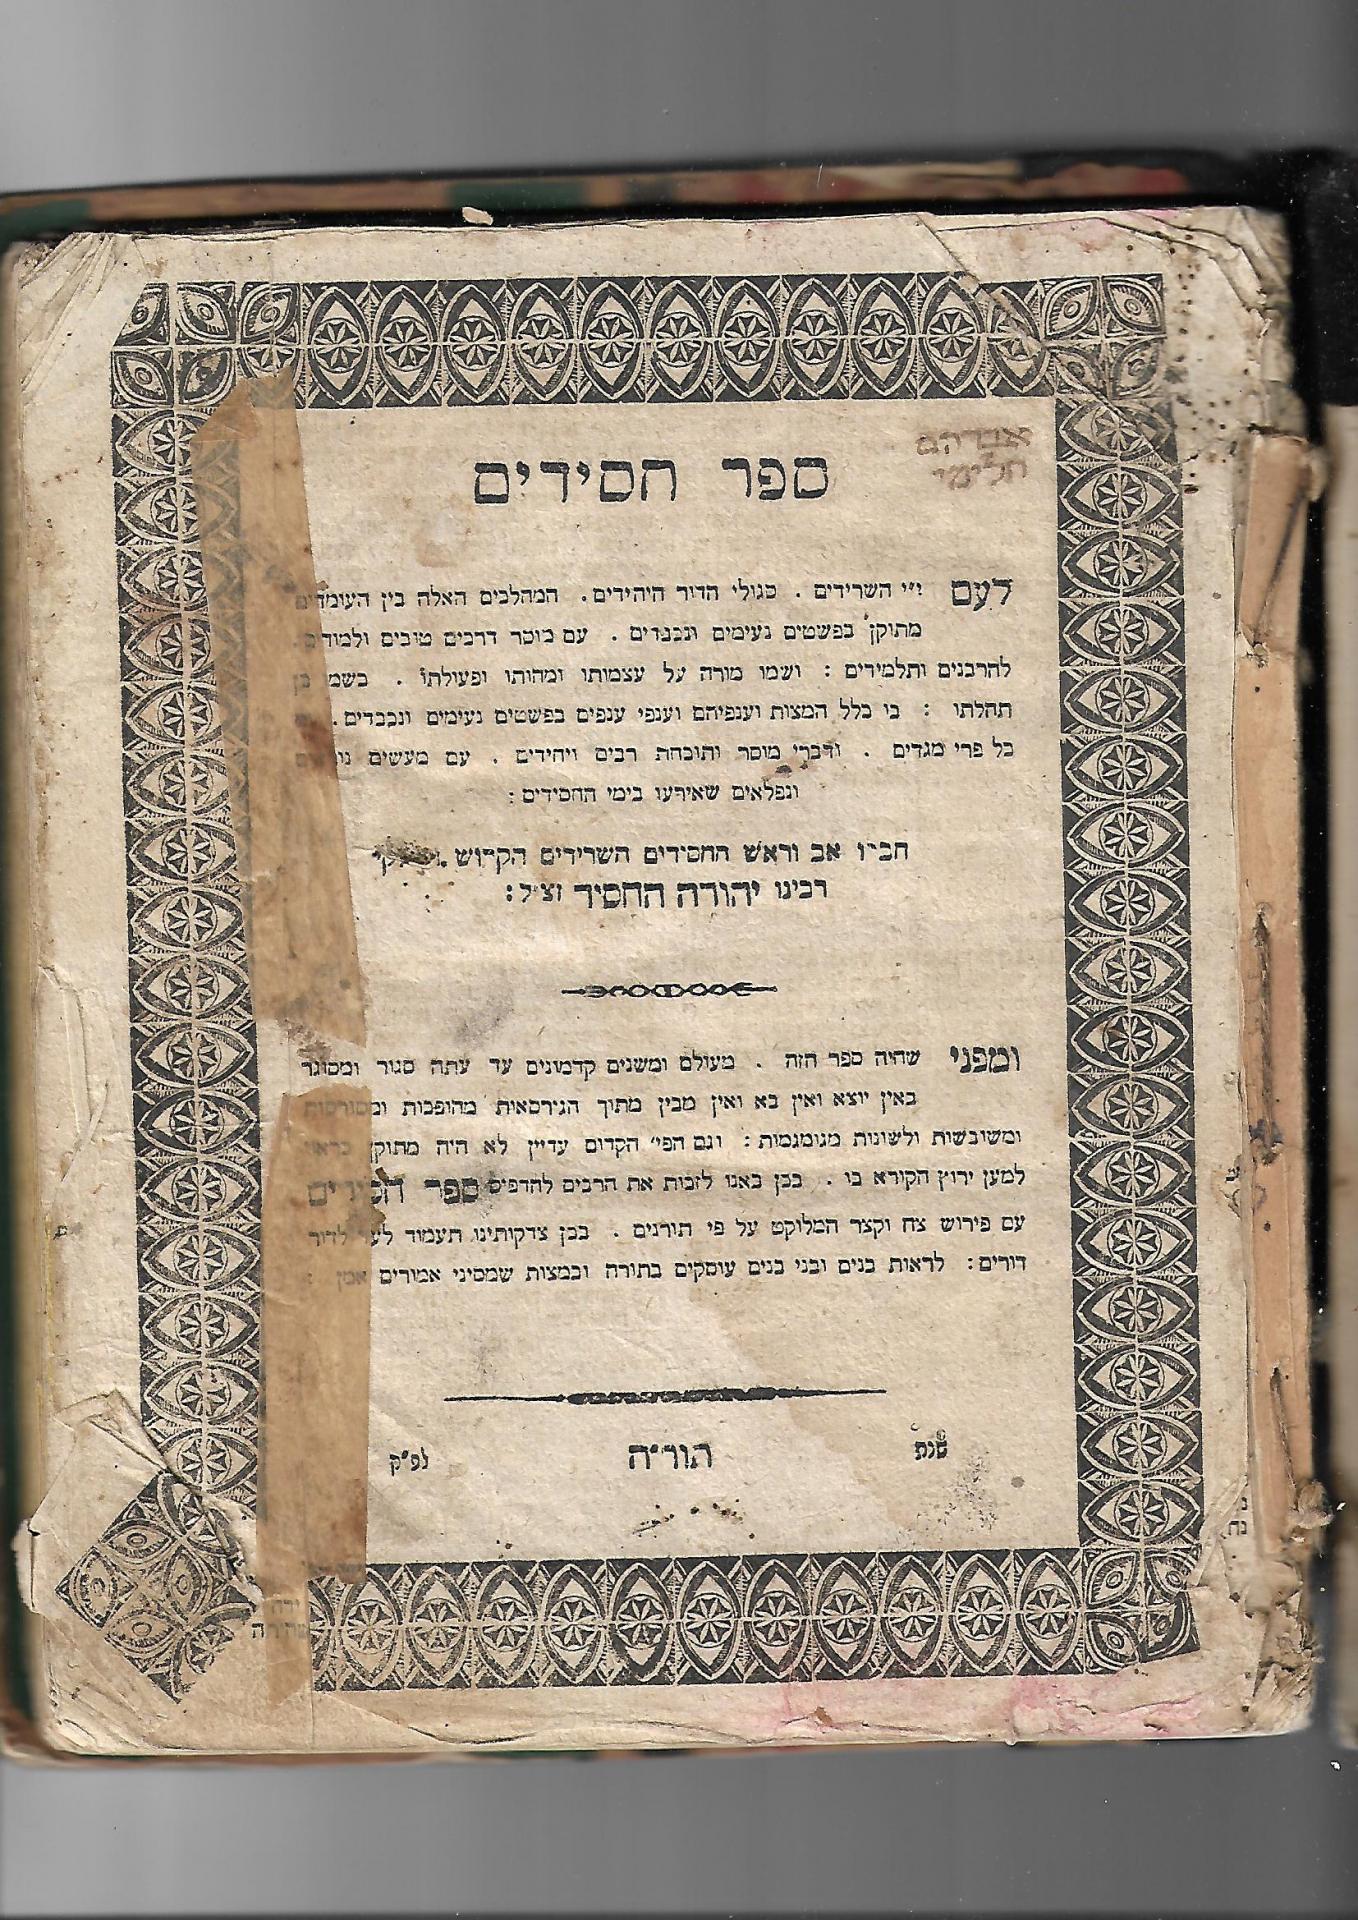 ספר חסידים
אברהם
חלימי
דעם ז״י השרידים . סגולי הדור היחידים . המהלכים האלה בין העומדים
מתוקן בפשטים נעימים ונכבדים . עם מוסר דרכים טובים ולמודים .
להרבנים ותלמידים : ושמו מורה על עצמותו ומהותו ופעולתו . בשמו כן
תהלתו : בו כלל המצות וענפיהם וענפי ענפים בפשטים נעימים ונכבדים .
כל פרי מגדים . ודברי מוסר ותוכחת רבים ויחידים . עם מעשים
ונפלאים שאירעו בימי החסידים :
חברו אב וראש החסידים השרידים הקדוש
רבינו יהודה החסיד זצ״ל :
ומפני שהיה ספר הזה . מעולם ומשנים קדמונים עד עתה סגור ומסוגר
באין יוצא ואין בא ואין מבין מתוך הגירסאות מהופכות ומסורסות
ומשובשות ולשונות מגומגמות : וגם הפי׳ הקדום עדיין לא היה מתוקן כראוי
למען ירוץ הקורא בו . בכן באנו לזכות את הרבים להדפיס ספר חסידים
עם פירוש צח וקצר המלוקט על פי תורנים . בכן צדקותינו תעמוד לעד לדור
דורים : לראות בנים ובני בנים עוסקים בתורה ובמצות שמסיני אמורים אמן :
שנת תור״ה לפ״ק